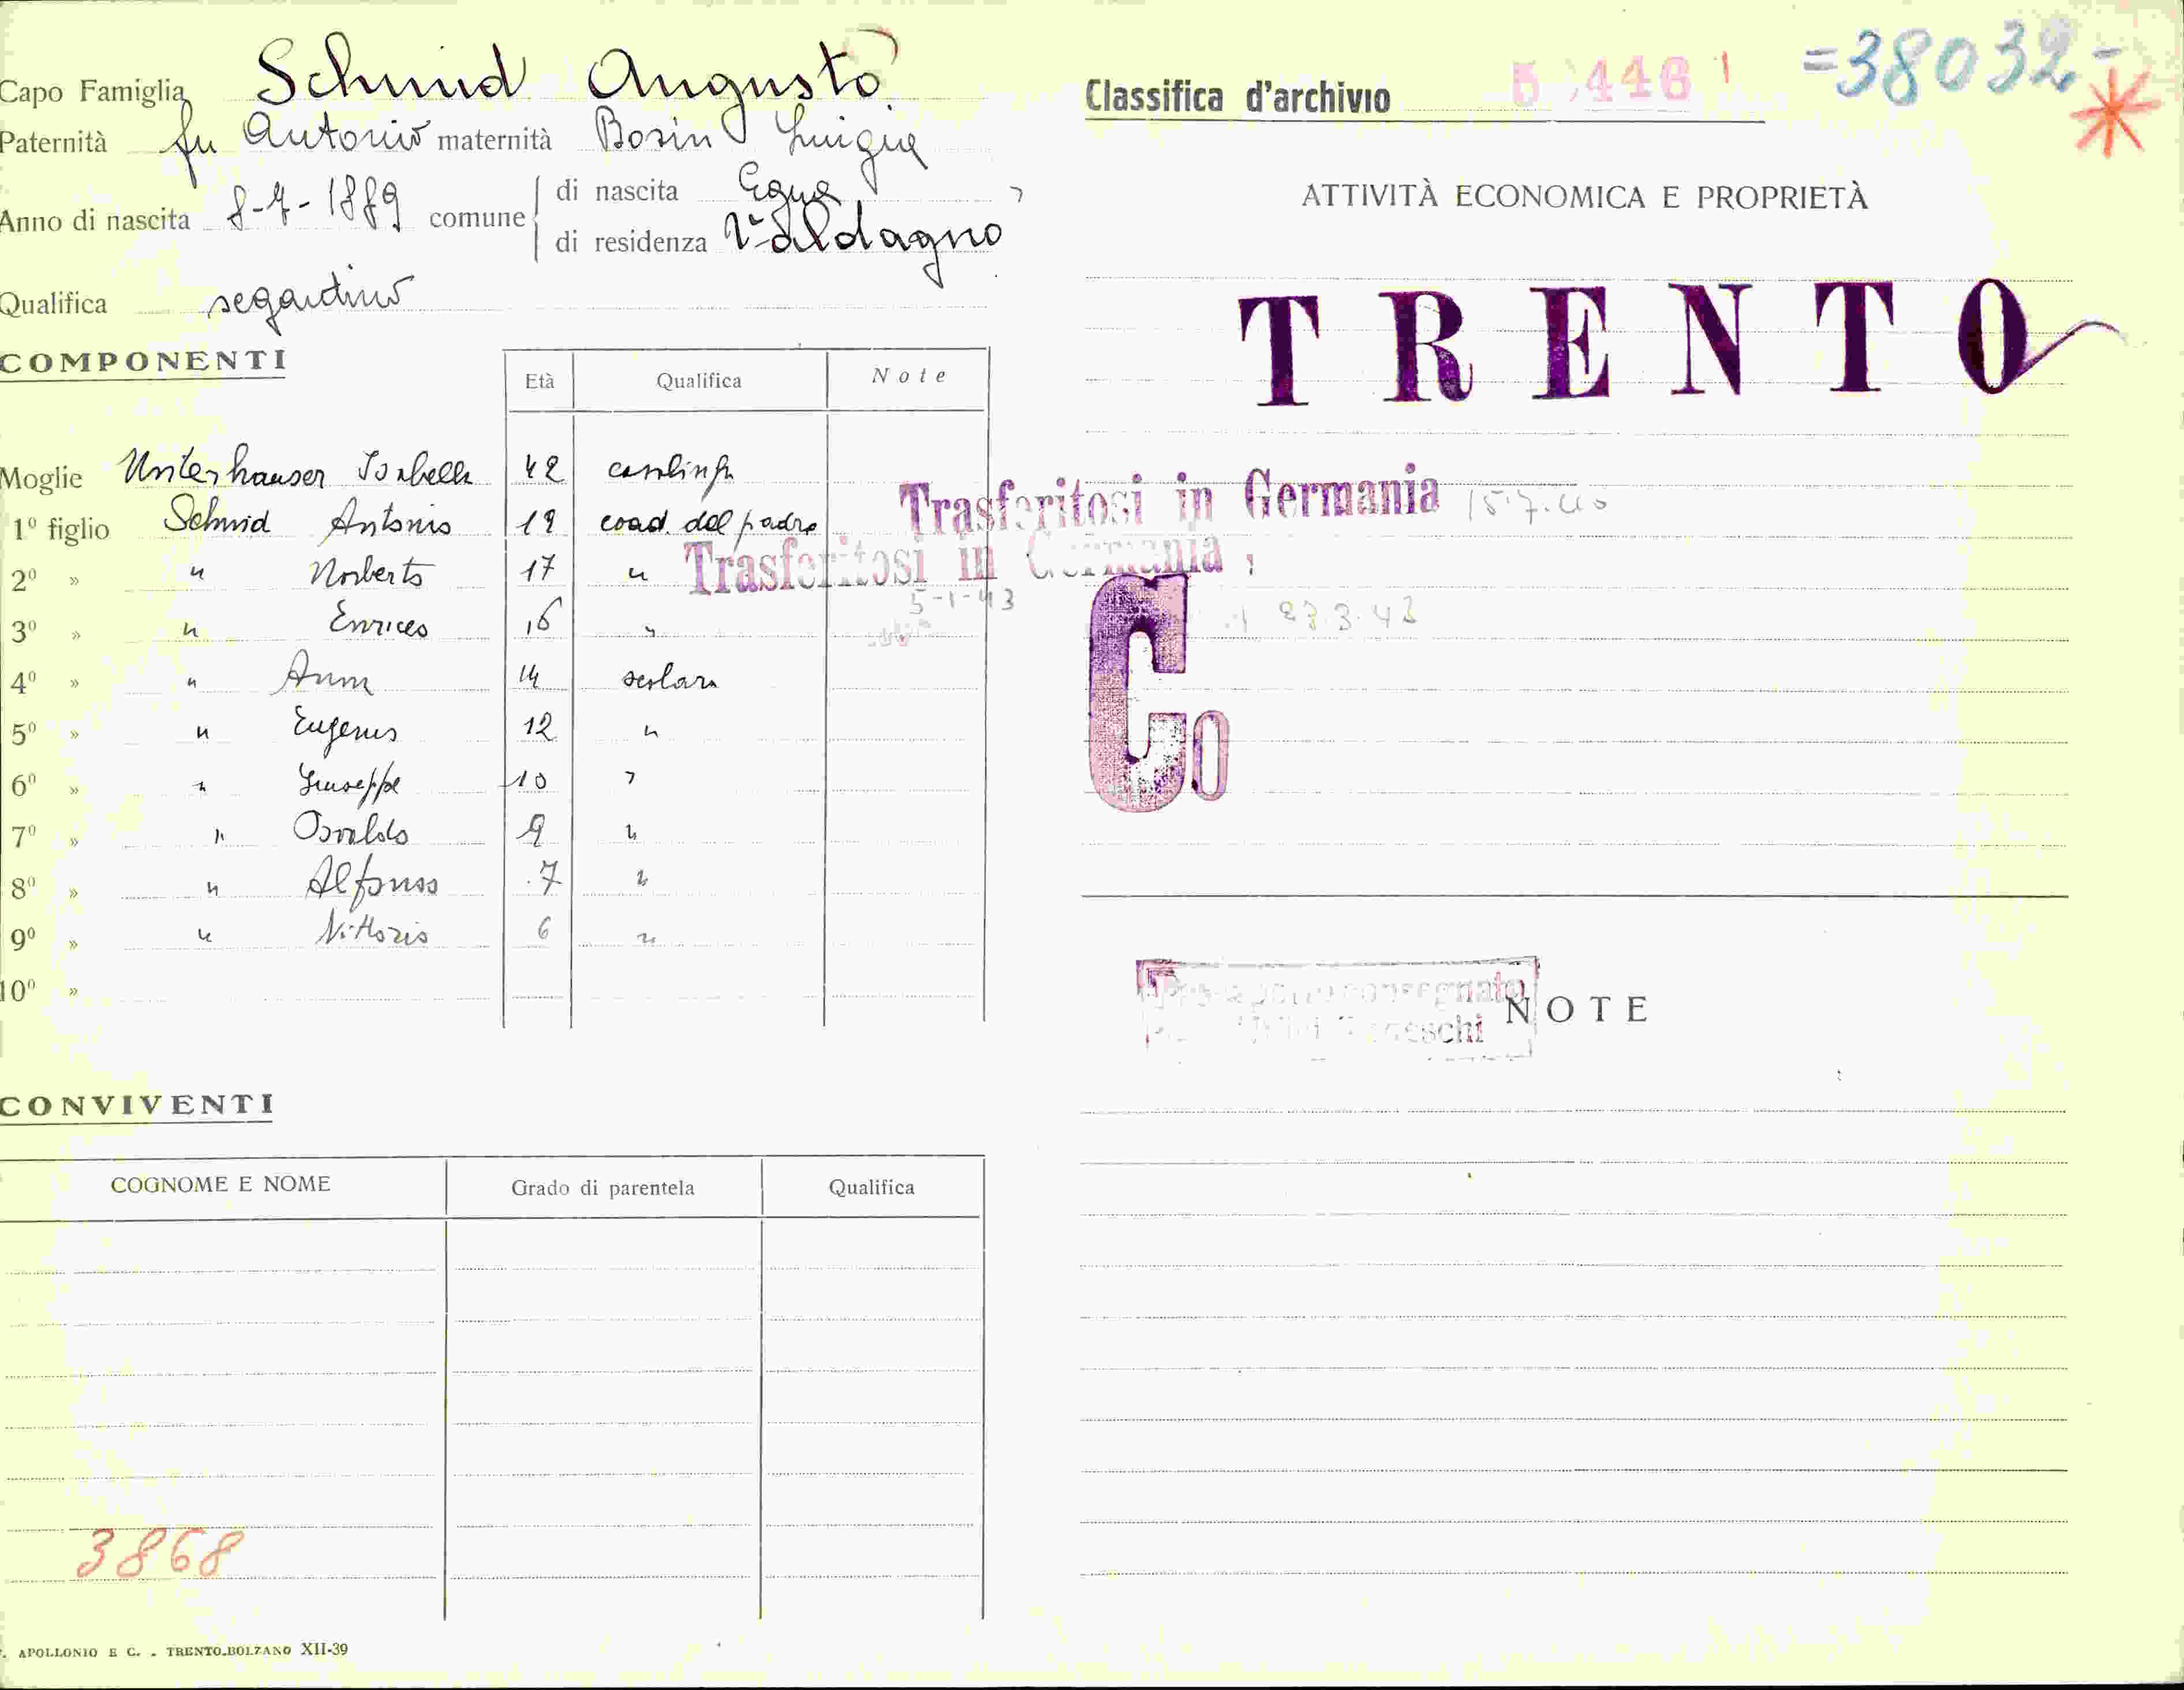 Capo Famiglia Schmid Augusto
Paternità fu Antonio maternità Bosin Luigia
Anno di nascita 8-7-1889 comune di nascita Egna
di residenza Valdagno
Qualifica segantino
COMPONENTI
Età Qualifica Note
Moglie Unterhauser Isabella 42 casalinga
1º figlio Schmid Antonio 19 coad. del padre
2º » " Norberto 17 "
3º » " Enrico 16 "
4º » " Anna 14 scolara
5º » " Eugenio 12 "
6º » " Giuseppe 10 "
7º » " Osvaldo 9 "
8º » " Alfonso 7 "
9º » " Vittorio 6 "
10º »
Trasferitosi in Germania 15.7.40
Trasferitosi in Germania
5-1-43
CONVIVENTI
COGNOME E NOME Grado di parentela Qualifica
3868
APOLLONIO E C. - TRENTO-BOLZANO XII-39
Classifica d'archivio =38032-
ATTIVITÀ ECONOMICA E PROPRIETÀ
TRENTO
Co
NOTE